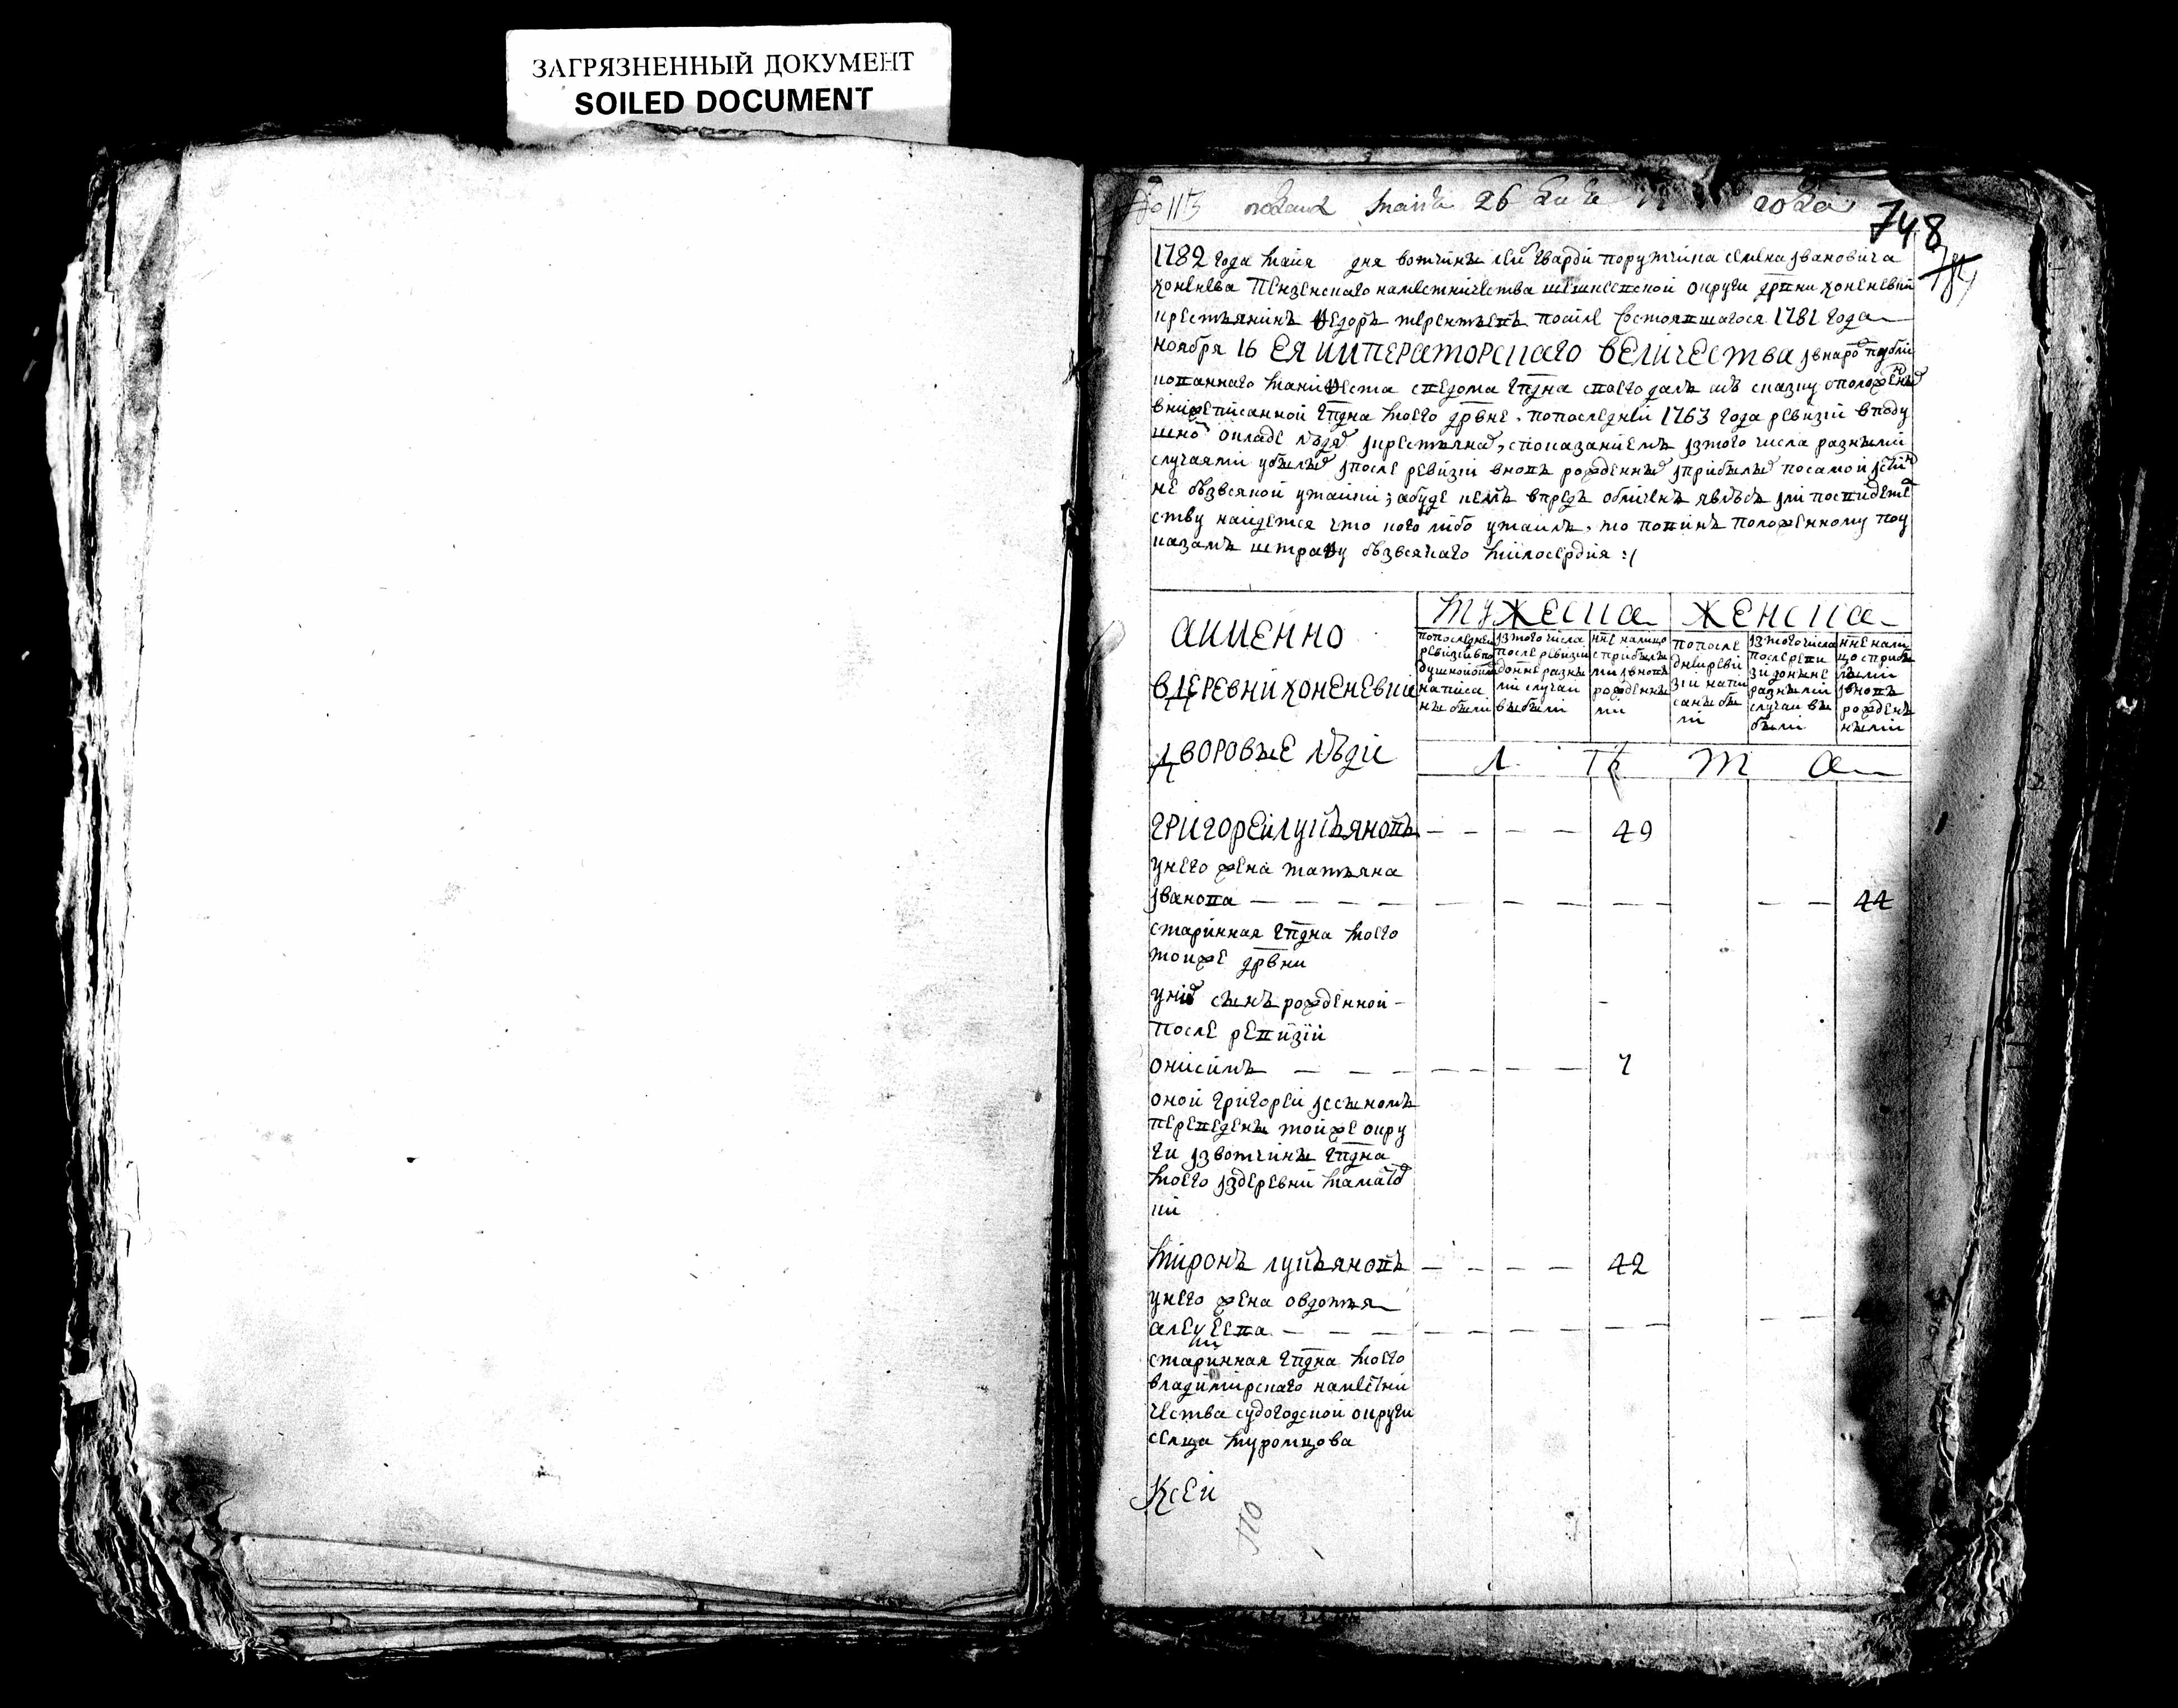 ЗАГРЯЗНЕННЫЙ ДОКУМЕНТ
SOILED DOCUMENT
подана маия 26 года
748
1782 года маия дня вотчины лейб гварди порутчика семена ивановича
хоненева пензенскаго наместничества шешкеевской округи дрвни хоненевки
крестьянинъ ѳедоръ терентьевъ после состоявшагося 1781 года
ноября 16 ея императорскаго величества внаро публи
кованнаго маниѳеста сведома гпдна своего далъ сию сказку ополож
вниже писанной гпдна моего дрвне попоследней 1763 года ревизии вподу
шно окладе людя икрестьяна, споказаниемъ изтого числа разными
случаями убылы ипосле ревизии вновь рожденны иприбылы посамой исти
не бьзвсякой утайки; абуде кемъ впредь обличенъ явлюсь или посвидете
ству найдется что кого либо утаилъ, то повинъ положенному поу
казамъ штраѳу бьзвсякаго милосердия :/
аименно
вдеревни хоненевки
дворовые люди
мужеска
женска
попоследней ревизии впо душной окла написа ны были
изтого числа после ревизии доне разны ми случаи выбыли
нне налицо сприбылы ми ивновь рожденны ми
попосле дней реви зии напи саны бы ли
изтого числа после реви зи доныне разными случаи вы были
нне нали цо сприбы лыми ивновь рожден ными
л ѣ т а
григорей лукьяновъ — — — — 49
унего жена татьяна
иванова — — — — 44
старинная гпдна моего
тойже дрвни
уни сынъ рожденной
после ревизии
онисимъ — — — — 7
оной григорей иссыномъ
переведены тойже окру
ги извотчины гпдна
моего издеревни мама
ки
миронъ лукьяновъ — — — — 42
унего жена овдотья
алексеева — — — —
старинная гпдна моего
владимирскаго наместни
чества судогодской округи
селца муромцова
Ксей
по